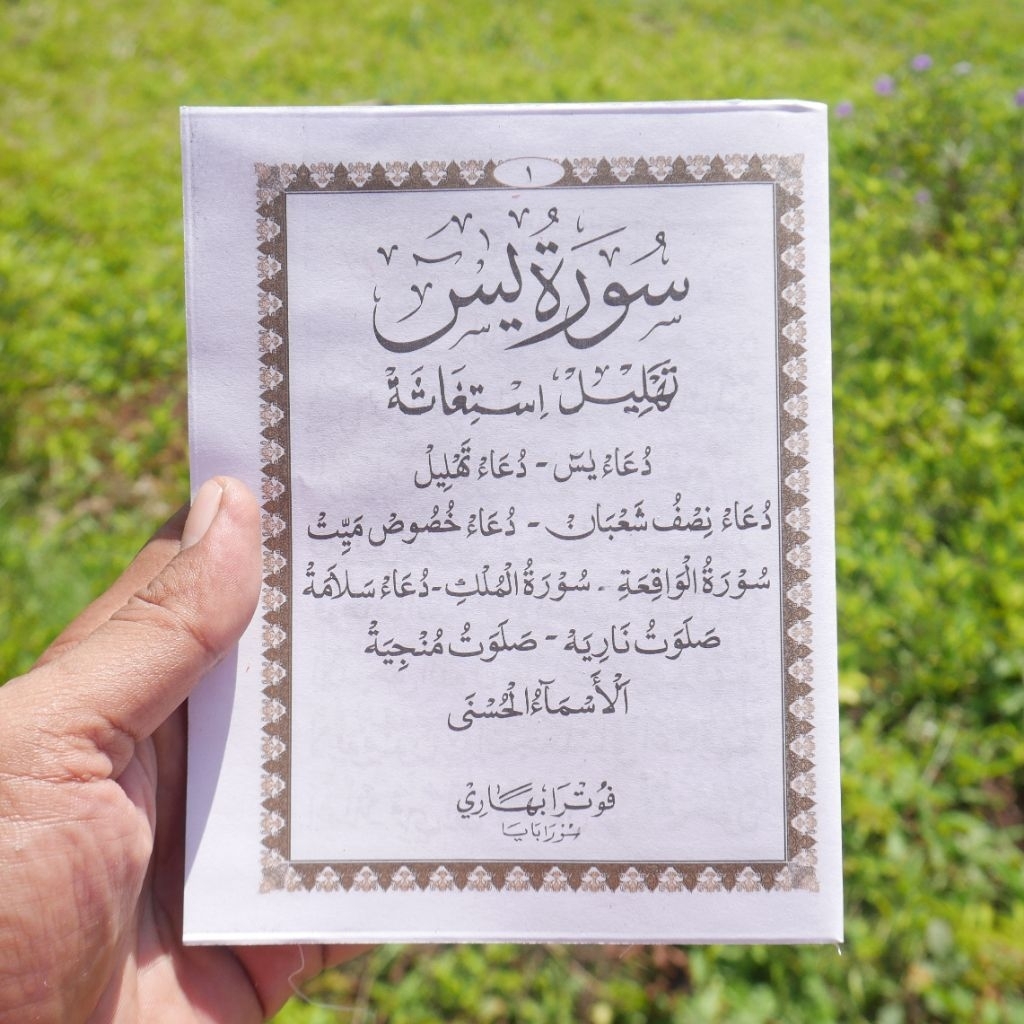 ١
سُوْرَةُ يٰسٓ
تَهْلِيْلْ اِسْتِغَاثَةْ
دُعَاءْ يٰسٓ - دُعَاءْ تَهْلِيْلْ
دُعَاءْ نِصْفُ شَعْبَانْ - دُعَاءْ خُصُوصْ مَيِّتْ
سُوْرَةُ الْوَاقِعَةِ . سُوْرَةُ الْمُلْكِ - دُعَاءْ سَلاَمَةْ
صَلَوَتُ نَارِيَهْ - صَلَوَتُ مُنْجِيَةْ
اَلْأَسْمَآءُ الْحُسْنَى
فُوْتْرَا بَهَارِيْ
سُوْرَابَايَا